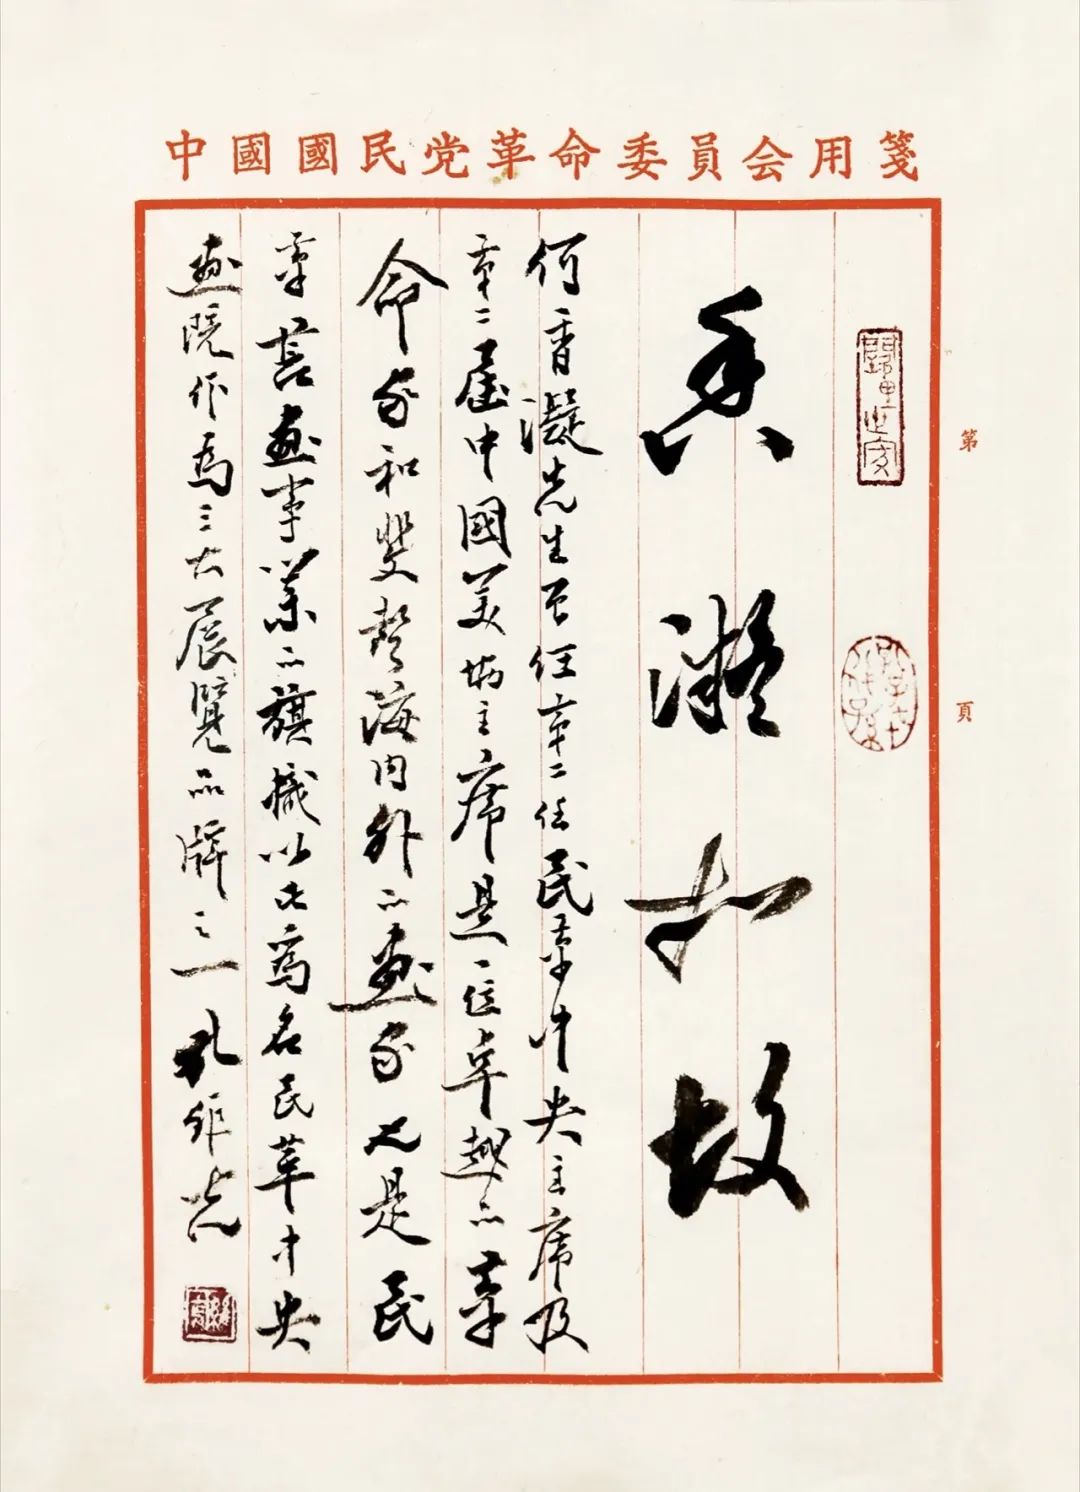 中國國民党革命委員会用箋
香凝如故
何香凝先生曾任第二任民革中央主席及
第二届中國美协主席是一位卓越的革
命家和斐聲海内外的画家也是民
革書画事業的旗幟以此為名民革中央
画院作為三大展覽品牌之一 孔維克
第 頁